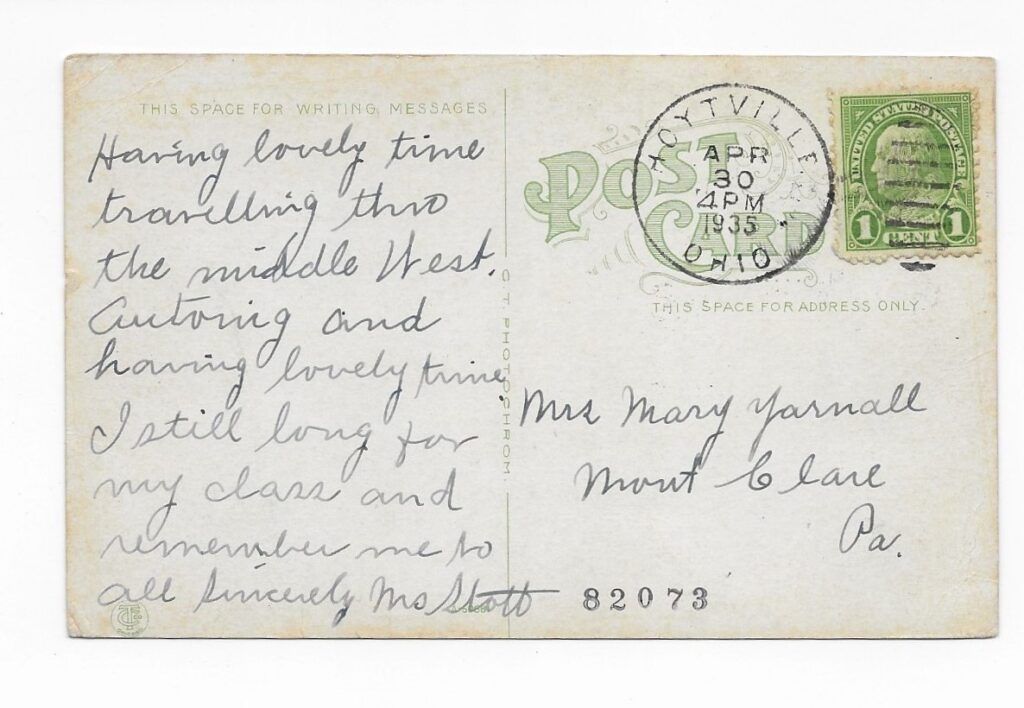 THIS SPACE FOR WRITING MESSAGES
Having lovely time
travelling thro
the middle West.
Autoing and
having lovely time
I still long for
my class and
remember me to
all Sincerely Mrs Stott
C T PHOTOCHROM
POST
CARD
HOYTVILLE
APR
30
4 PM
1935
OHIO
UNITED STATES POSTAGE
1 CENT 1
THIS SPACE FOR ADDRESS ONLY.
Mrs Mary Yarnall
Mont Clare
Pa.
82073